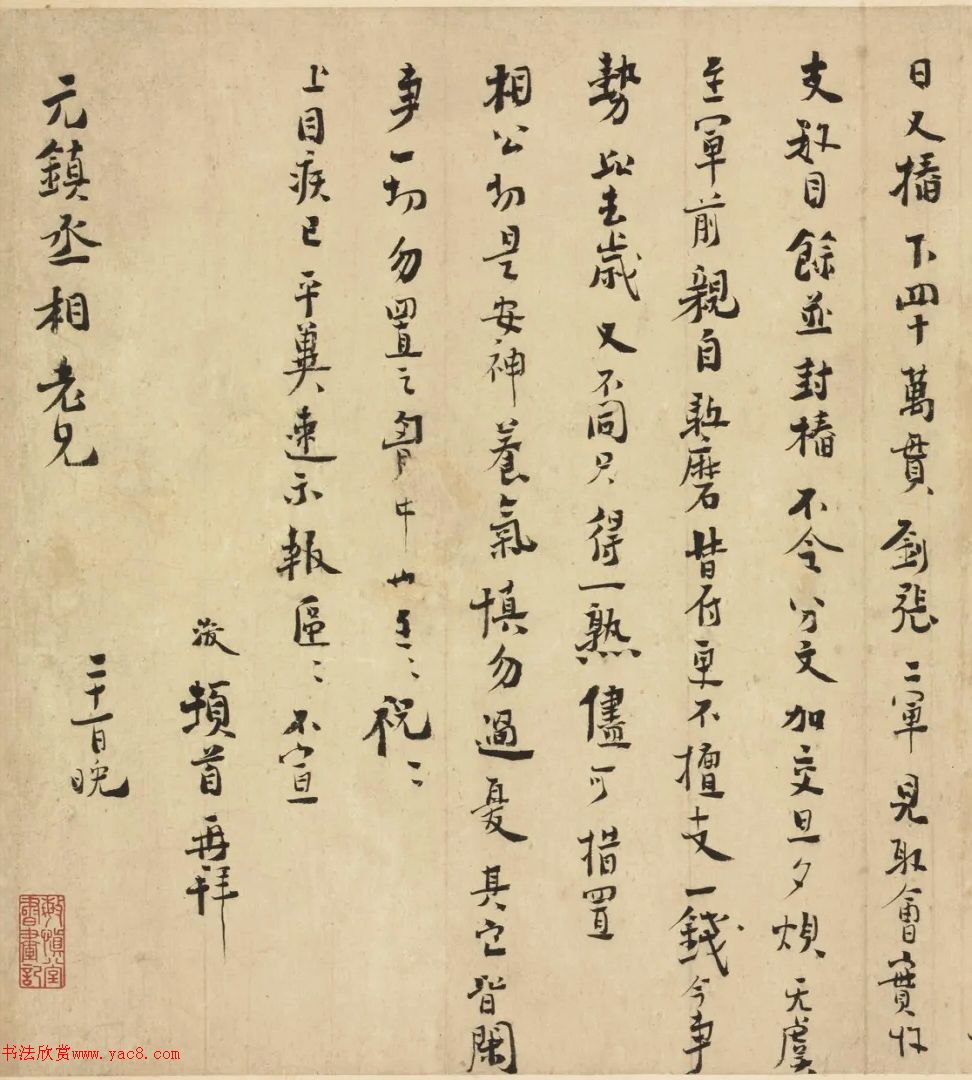 日又樁下四十萬貫劉張二軍見取會實收
支數目餘並封樁不令分文加交旦夕煩无虞
至軍前親自點磨昔付更不擅支一錢今事
勢比去歲又不同只得一熟儘可措置
相公切是安神養氣慎勿過憂其它皆閑
事一切勿置之胷中也至〻祝〻
上目疾已平冀速示報區〻不宣
浚頓首再拜
元鎮丞相老兄
二十一日晚
書法欣赏www.yac8.com